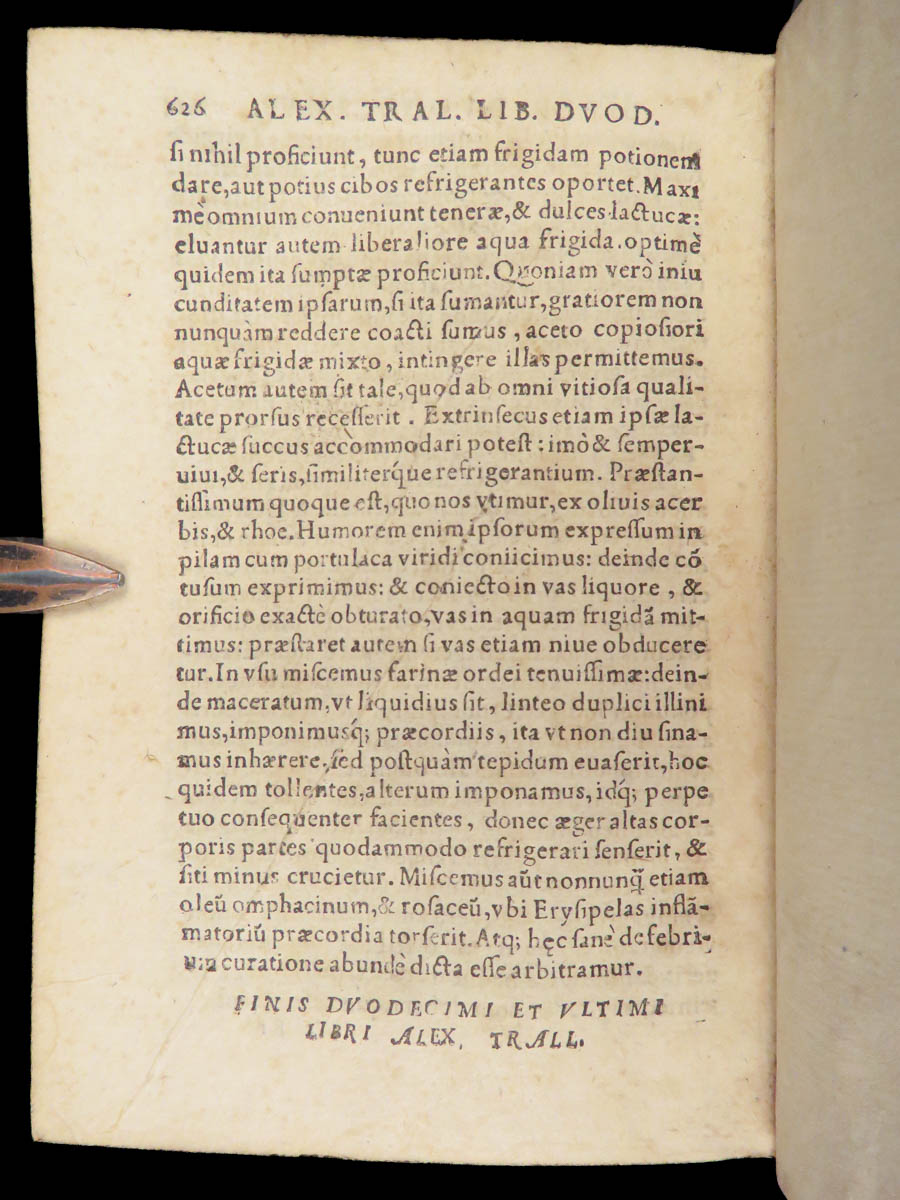 626 ALEX. TRAL. LIB. DVOD.
ſi nihil proficiunt, tunc etiam frigidam potionem
dare, aut potius cibos refrigerantes oportet. Maxi
mè omnium conueniunt teneræ, & dulces lactucæ:
eluantur autem liberaliore aqua frigida. optimè
quidem ita ſumptæ proficiunt. Quoniam verò iniu
cunditatem ipſarum, ſi ita ſumantur, gratiorem non
nunquàm reddere coacti ſumus, aceto copioſiori
aquæ frigidæ mixto, intingere illas permittemus.
Acetum autem ſit tale, quod ab omni vitioſa quali-
tate prorſus receſſerit. Extrinſecus etiam ipſæ la-
ctucæ ſuccus accòmmodari poteſt: imò & ſemper-
uiui, & ſeris, ſimiliterq́ue refrigerantium. Præſtan-
tiſſimum quoque eſt, quo nos vtimur, ex oliuis acer
bis, & rhoe. Humorem enim ipſorum expreſſum in
pilam cum portulaca viridi coniicimus: deinde cõ
tuſum exprimimus: & coniecto in vas liquore, &
orificio exactè obturato, vas in aquam frigidã mit-
timus: præſtaret autem ſi vas etiam niue obducere
tur. In vſu miſcemus farinæ ordei tenuiſſimæ: dein-
de maceratum, vt liquidius ſit, linteo duplici illini
mus, imponimusq́; præcordiis, ita vt non diu ſina-
mus inhærere, ſed poſtquàm tepidum euaſerit, hoc
quidem tollentes, alterum imponamus, idq́; perpe
tuo conſequenter facientes, donec æger altas cor-
poris partes quodammodo refrigerari ſenſerit, &
ſiti minus crucietur. Miſcemus aũt nonnunq̃ etiam
oleũ omphacinum, & roſaceũ, vbi Eryſipelas inflã-
matoriũ præcordia torſerit. Atq; hęc ſanè de febri-
um curatione abundè dicta eſſe arbitramur.
FINIS DVODECIMI ET VLTIMI
LIBRI ALEX. TRALL.